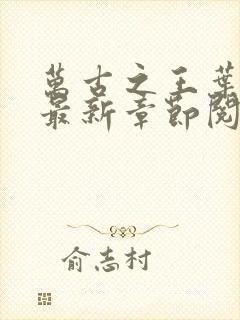 萬古之王葉
最新章節閱
俞志村